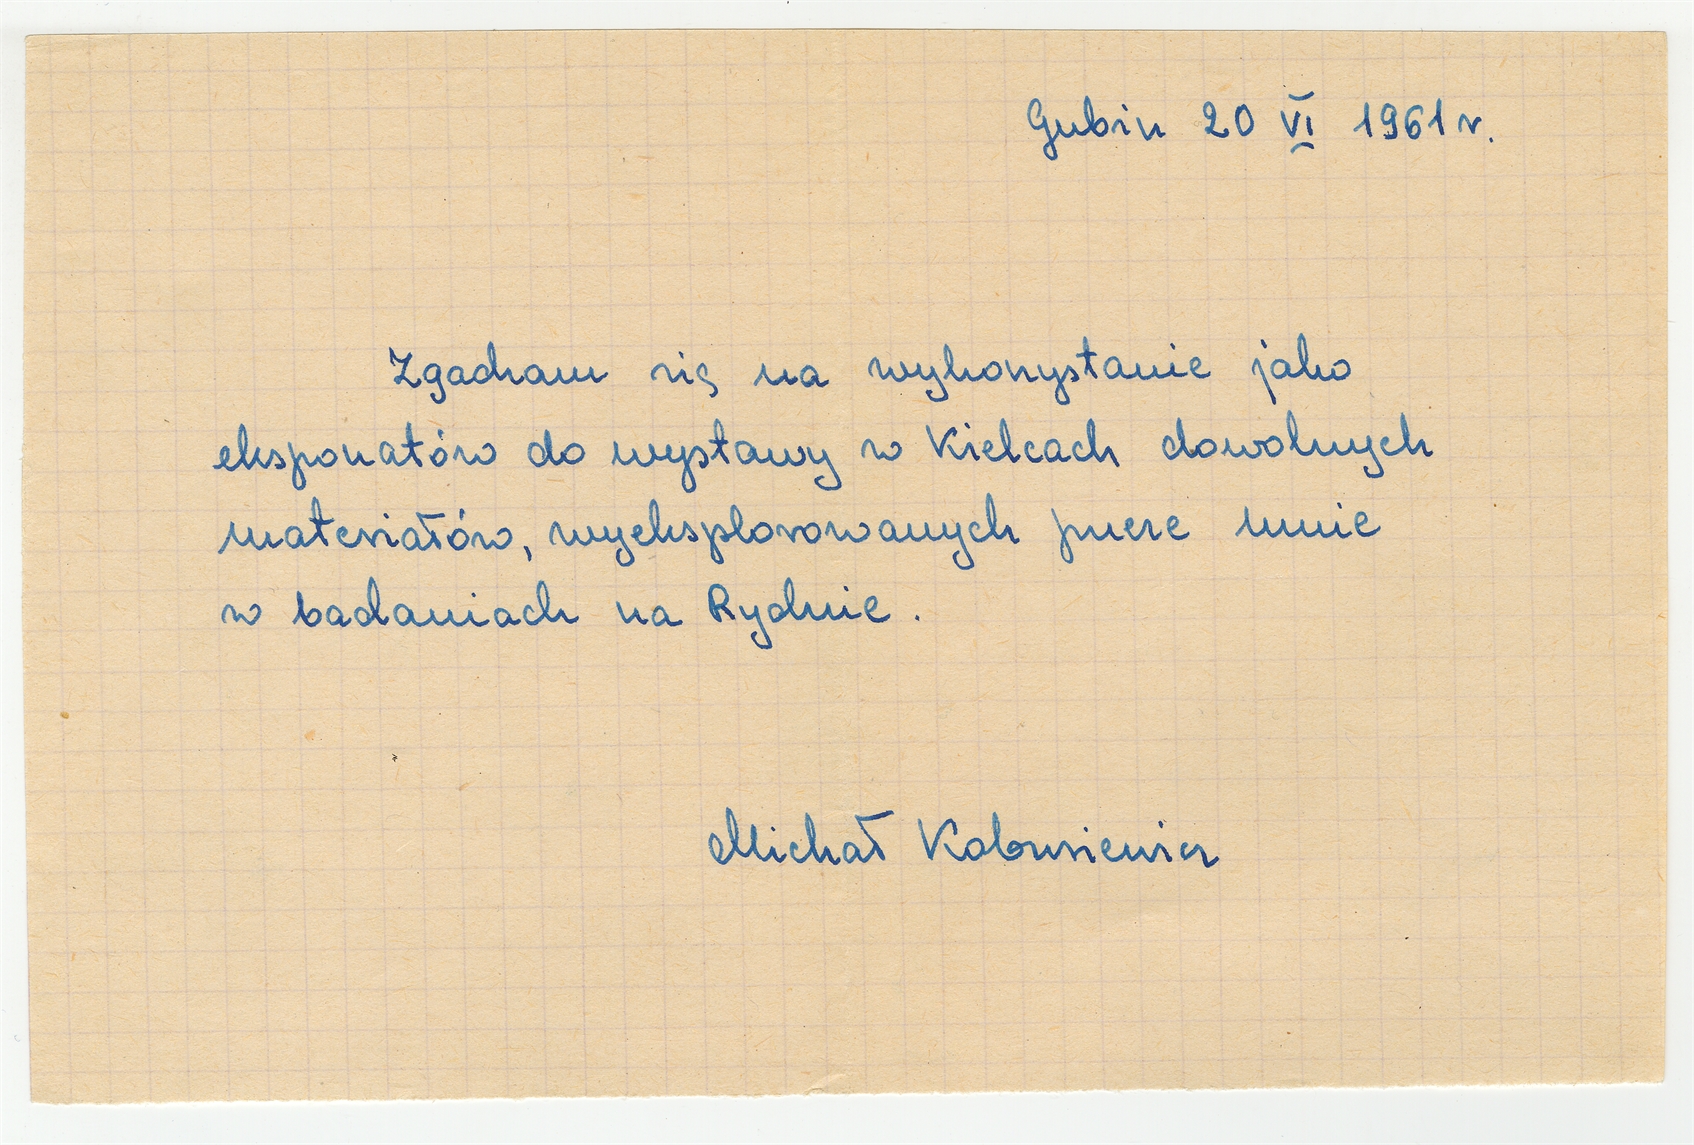 Gubin 20 VI 1961 r.
Zgadzam się na wykorzystanie jako
eksponatów do wystawy w Kielcach dowolnych
materiałów, wyeksplorowanych przeze mnie
w badaniach na Rydnie.
Michał Kobusiewicz